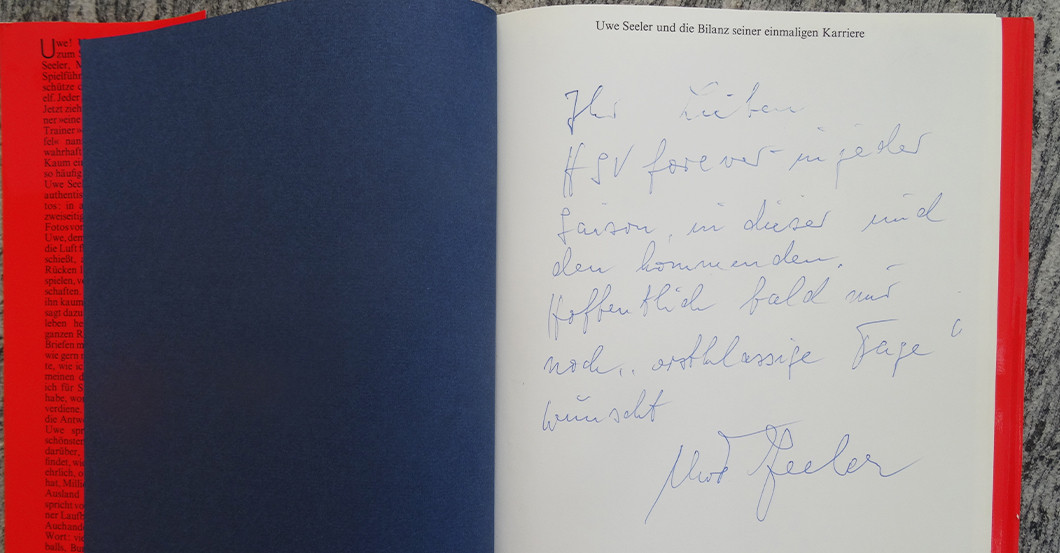 Uwe!
zum
Seeler,
Spielführ
schütze
elf. Jeder
Jetzt zieh
ner »eine
Trainer »
fel« nan
wahrhaft
Kaum ein
so häufig
Uwe See
authentis
tos: in a
zweiseitig
Fotos vor
Uwe, dem
die Luft f
schießt,
Rücken
spielen, v
schaften.
ihn kaum
sagt dazu
leben he
ganzen R
Briefen m
wie gern s
te, wie ic
meinen d
ich für S
habe, wo
verdiene.
die Antw
Uwe spr
schönsten
darüber,
findet, wi
ehrlich, o
hat, Milli
Ausland
spricht vo
ner Laufb
Auchand
Wort: vie
balls, Bu
Uwe Seeler und die Bilanz seiner einmaligen Karriere
Ihr Lieben
HSV forever - in jeder
Saison, in dieser und
den kommenden.
Hoffentlich bald nur
noch „erstklassige Tage“
wünscht
Uwe Seeler